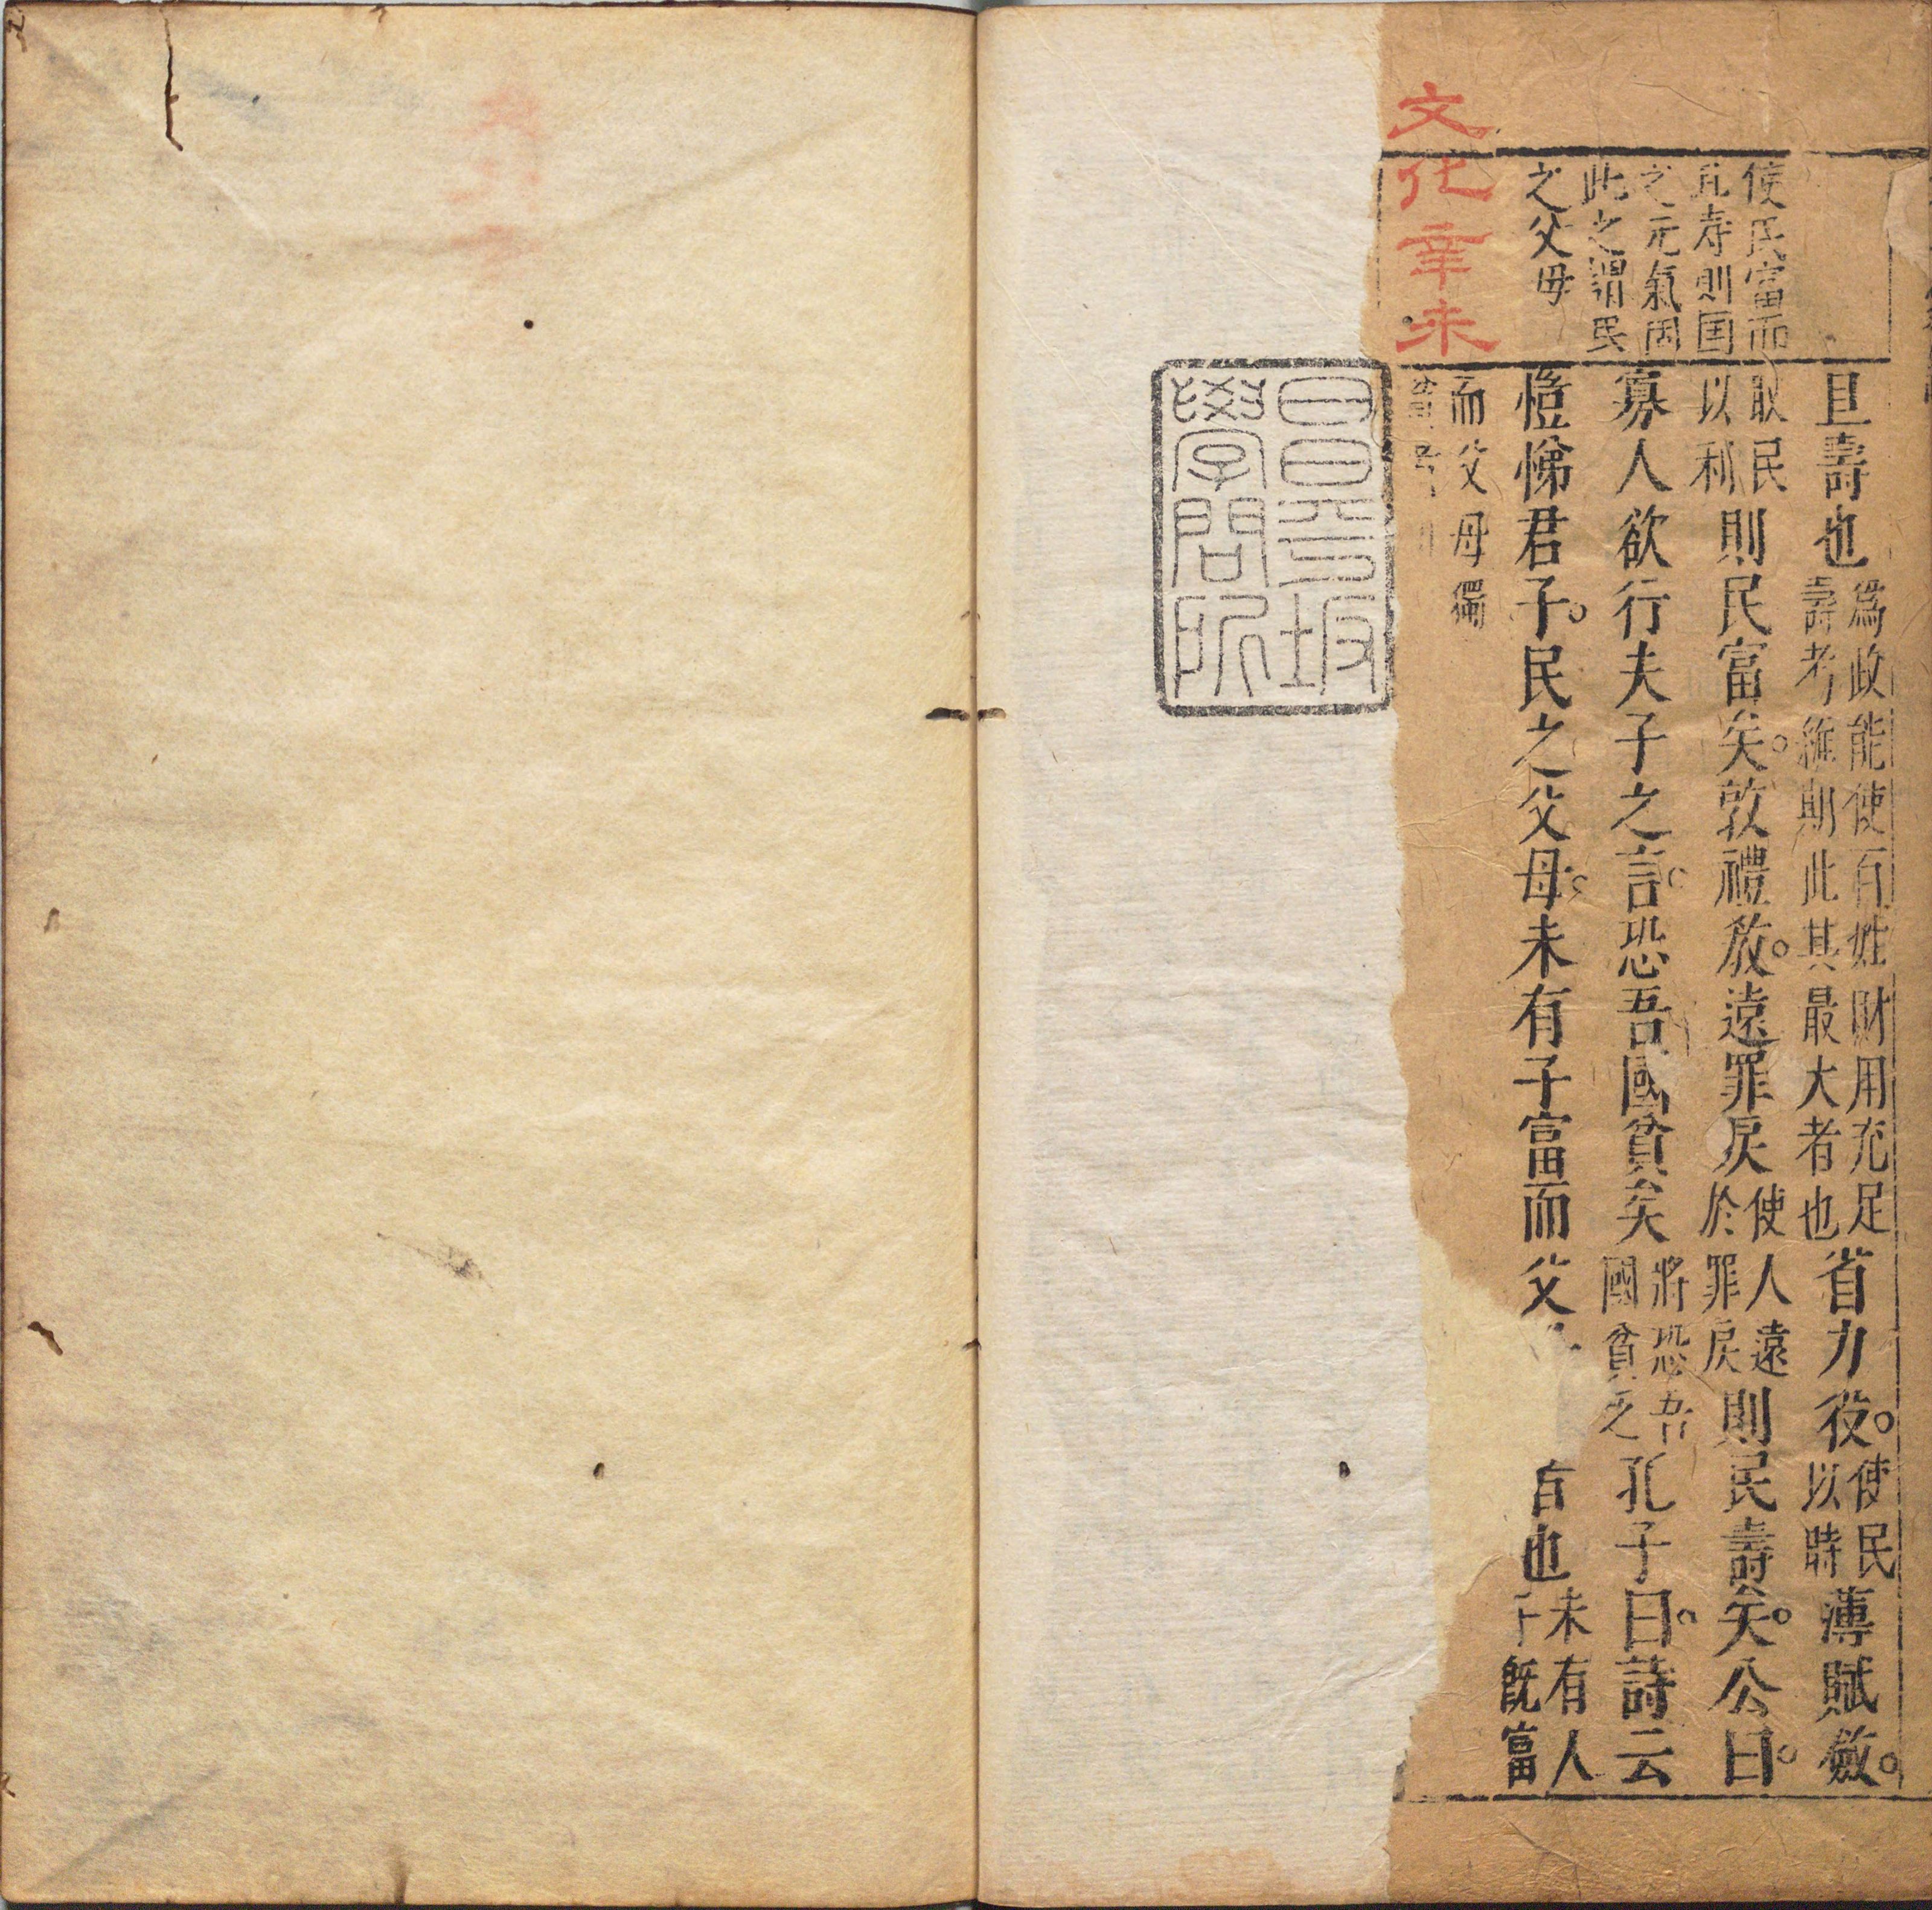 使民富而
且寿則国
之元氣固
此之謂民
之父母
且壽也爲政能使百姓財用充足壽考維期此其最大者也省力役使民以時薄賦斂
取民以利則民富矣敦禮教遠罪戾使人遠於罪戾則民壽矣公曰
寡人欲行夫子之言恐吾國貧矣將恐吾國貧乏孔子曰詩云
愷悌君子民之父母未有子富而父也未有人子既富
而父母獨
文化辛未
昌平坂
學問所